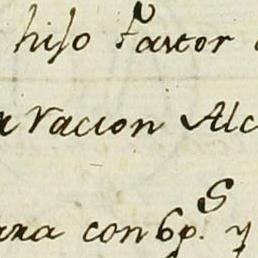 hiso Pastor
racion Alc
ara con 6p.s y